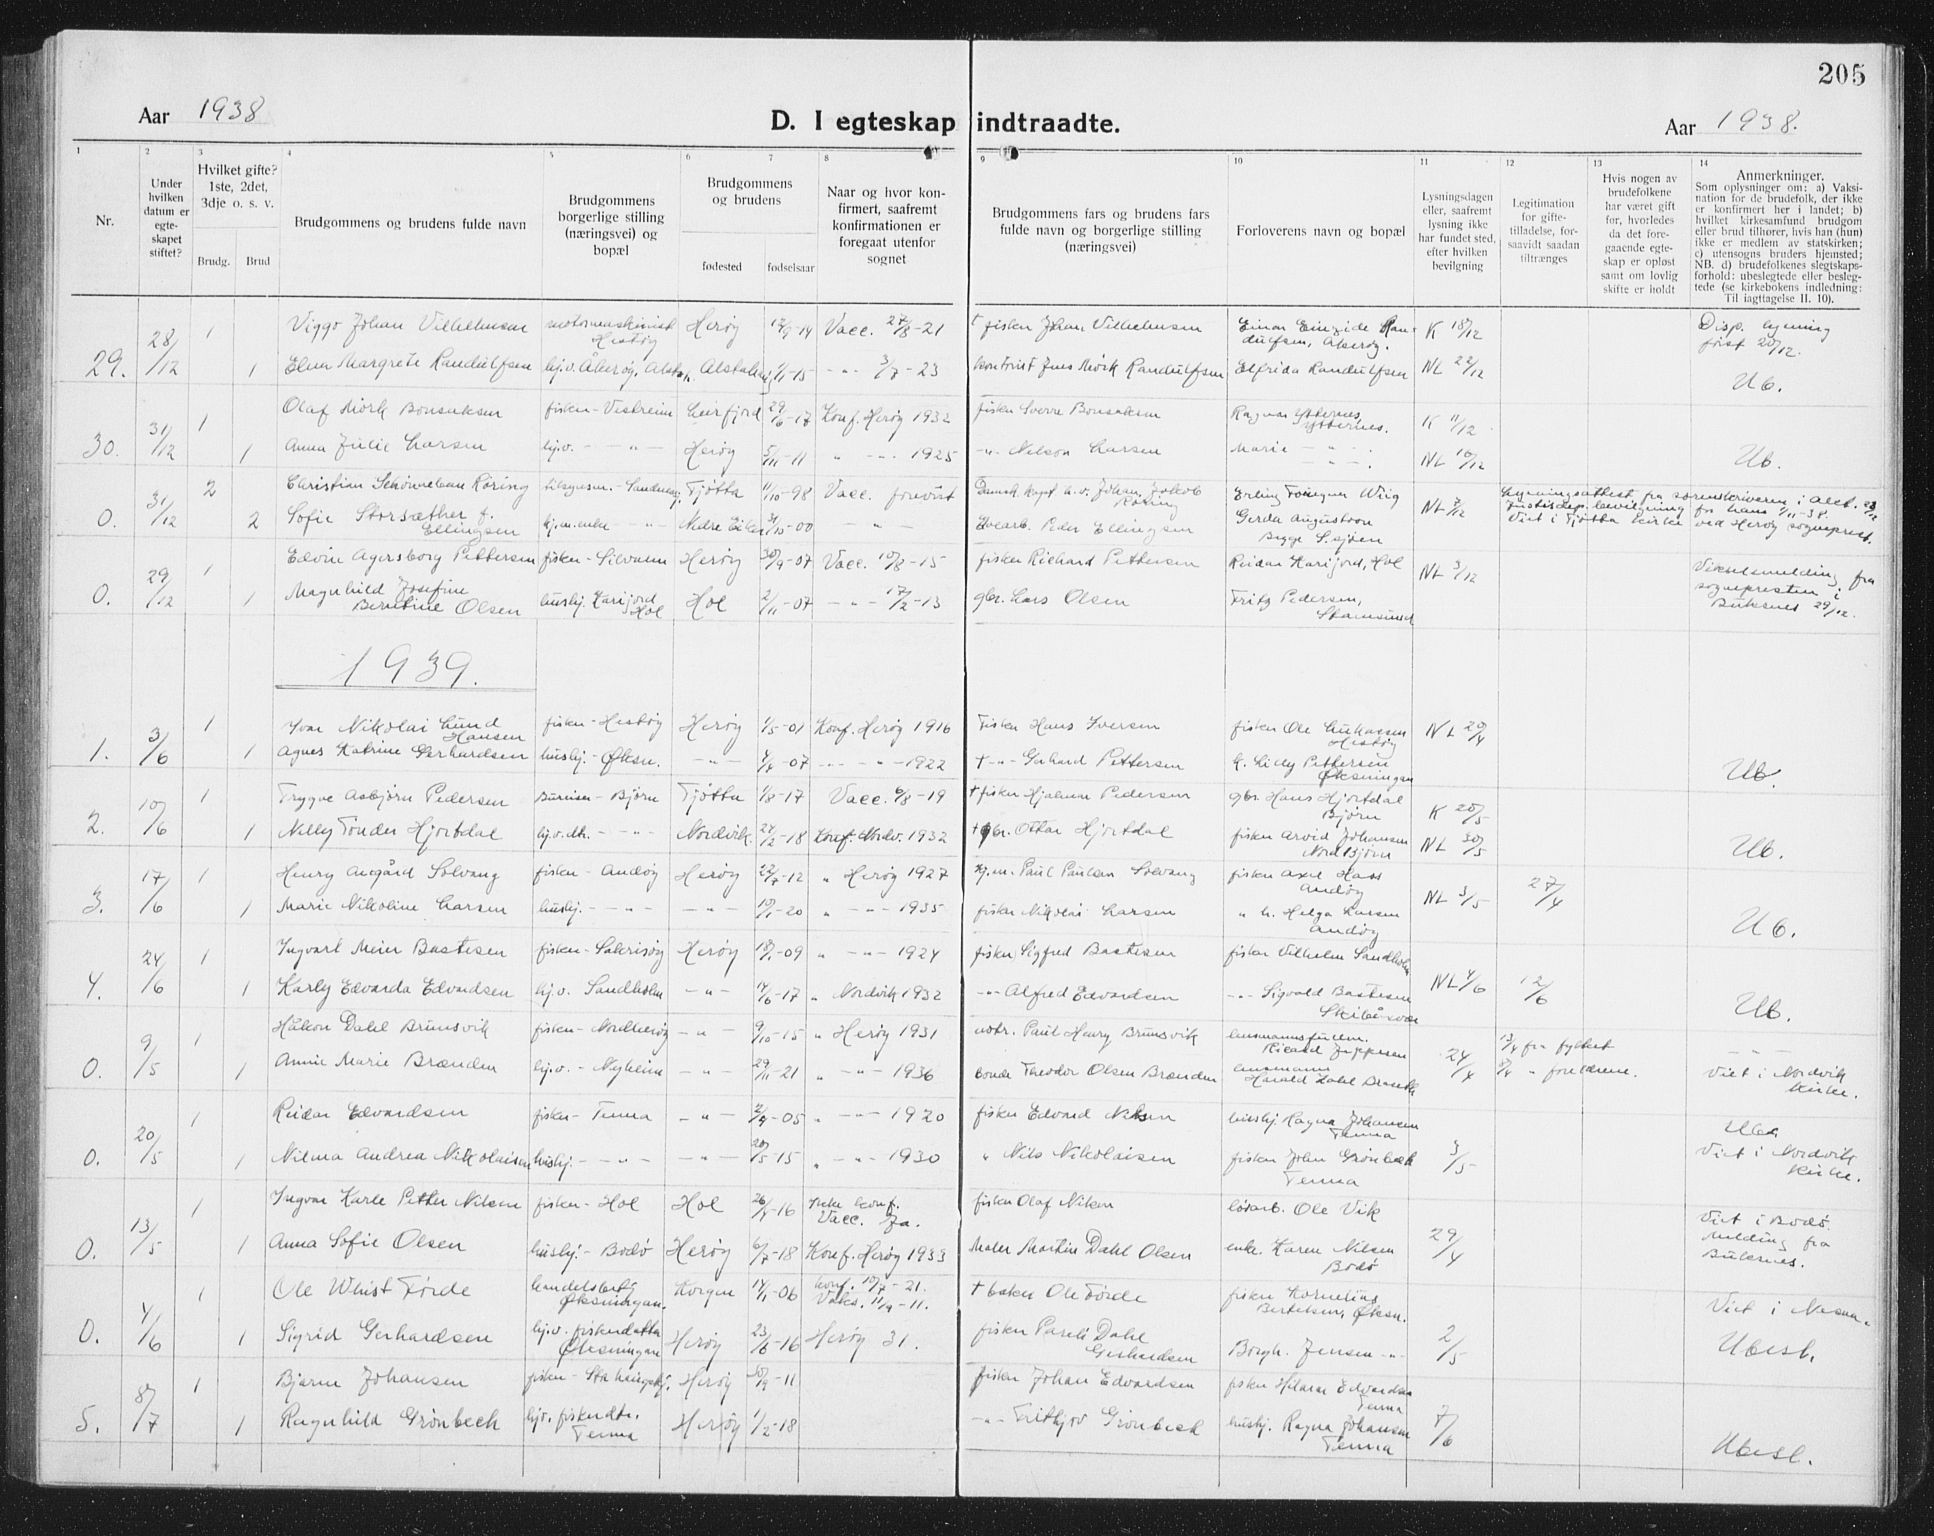 205
Aar 1938
D. I egteskap indtraadte.
Aar 1938.
1 2 3 4 5 6 7 8 9 10 11 12 13 14
Nr.
Under hvilken datum er egte-skapet stiftet?
Hvilket gifte? 1ste, 2det, 3dje o. s. v.
Brudg. Brud
Brudgommens og brudens fulde navn
Brudgommens borgerlige stilling (næringsvei) og bopæl
Brudgommens og brudens
fødested fødselsaar
Naar og hvor kon-firmert, saafremt konfirmationen er foregaat utenfor sognet
Brudgommens fars og brudens fars fulde navn og borgerlige stilling (næringsvei)
Forloverens navn og bopæl
Lysningsdagen eller, saafremt lysning ikke har fundet sted, efter hvilken bevilgning
Legitimation for gifte-tilladelse, for-saavidt saadan tiltrænges
Hvis nogen av brudefolkene har været gift før, hvorledes da det fore-gaaende egte-skap er opløst samt om lovlig skifte er holdt
Anmerkninger.
Som oplysninger om: a) Vaksi-nation for de brudefolk, der ikke er konfirmert her i landet; b) hvilket kirkesamfund brudgom eller brud tilhører, hvis han (hun) ikke er medlem av statskirken; c) utensogns bruders hjemsted; NB. d) brudefolkenes slegtskaps-forhold: ubeslegtede eller besleg-tede (se kirkebokens indledning: Til iagttagelse II. 10).
29. 28/12 1 Viggo Johan Vilhelmsen motormaskinist Hestøy Herøy 14 Vacc. 27/8-21 † fisker Johan Vilhelmsen Einar Eingide Ran-dulfsen, Åkerøy. K 18/12 Disp. lysning først 20/12.
1 Elna Margrete Randulfsen hj.v. Åkerøy, Alstah. Alstahaug 15 -"- 3/7-23 kontorist Jens Mørk Randulfsen Elfrida Randulfsen NL 22/12 Ub.
30. 31/12 1 Olaf Mørk Bonsaksen fisker - Vestreim Leirfjord 29/6-17 Konf. Herøy 1932 fisker Sverre Bonsaksen Ragnar Ytternes, Ytternes. K 11/12
1 Anna Julie Larsen hj.v. -"- Herøy 5/11-11 " -"- 1925 -"- Nelson Larsen Marie -"- NL 16/12 Ub.
0. 31/12 2 Christian Schønneban Røring tilsynsm. - Sandnessj. Tjøtta 11/10-98 Vacc. forevist Johan Jakob Røring Erling Wiig NL 7/12 Lysningsattest fra sorenskriveren i Alst.
2 Sofie Storsæther f. Ellingsen -"- Nedre Eiker 31/10-00 -"- Peder Ellingsen Gerda Augustson Begge S.sjøen Viet i Tjøtta kirke ved Herøy sogneprest.
0. 29/12 1 Edvin Agersborg Pettersen fisker - Silvalen Herøy 30/9-07 Vacc. 10/8-15 fisker Richard Pettersen Reidar Karijord, Hol NL 3/12 Vielsesmelding fra sognepresten i Buksnes 29/12.
1 Magnhild Josefine Berntine Olsen hushj. Karijord Hol Hol 2/11-07 -"- 17/2-13 gbr. Lars Olsen Fritz Pedersen, Stamsund
1939.
1. 3/6 1 Ivar Nikolai Lund Hansen fisker - Hestøy Herøy 1/5-01 Konf. Herøy 1916 Fisker Hans Iversen fisker Ole Hestøy NL 20/4
1 Agnes Katrine Gerhardsen hushj. - Øksn. -"- 4/4-07 -"- -"- 1922 † -"- Gerhard Pettersen h. Lidy Pettersen Øksningan Ub.
2. 10/6 1 Trygve Asbjørn Pedersen Bureiser - Bjørn Tjøtta 1/8-17 Vacc. 6/8-19 † fisker Hjalmar Pedersen gbr. Hans Hjortdal Bjørn K 20/5
1 Nelly Tonder Hjortdal hj.v.dtr. -"- Nordvik. 24/2-18 Konf. Nordv. 1932 † gbr. Ottar Hjortdal fisker Arvid Johansen Nord Bjørn NL 30/5 Ub.
3. 17/6 1 Henry Asgård Solvang fisker - Andøy Herøy 22/7-12 " Herøy 1927 Paul Paulsen Solvang fisker Axel Hass Andøy NL 3/5 27/4
1 Marie Nikoline Larsen hushj. -"- -"- 19/1-20 " -"- 1935 fisker Nikolai Larsen " h. Helga Larsen Andøy Ub.
4. 24/6 1 Ingvart Meier Bastesen fisker - Sakrisøy Herøy 18/1-09 " -"- 1924 fisker Sigfred Bastesen fisker Vilhelm Sandholm NL 4/6 12/6
1 Karly Edvarda Edvardsen hj.v. Sandholm -"- 14/6-17 " Nordvik 1932 -"- Alfred Edvardsen -"- Sigvald Bastesen Skibåsvær Ub.
0. 9/5 1 Håkon Dahl Brunsvik fisker - Nordherøy -"- 9/10-15 " Herøy 1931 Paul Henry Brunsvik lensmannsfullm. Rikard Jeppesen 24/4 13/4 fra fylket -"-
1 Annie Marie Brænden hj.v. - Nyheim -"- 29/11-21 " -"- 1936 bonde Theodor Olsen Brænden lensmann Harald Dahl Brunvik 8/4 " foreldrene. Viet i Nordvik kirke.
0. 20/5 1 Reidar Edvardsen fisker - Tenna -"- 2/4-05 " -"- 1920 fisker Edvard Nilsen hushj. Ragna Johansen Tenna Ub.
1 Nilma Andrea Nikolaisen hushj. -"- -"- 20/5-15 " -"- 1930 " Nils Nikolaisen fisker John Grønbeck Tenna 3/5 Viet i Nordvik kirke.
0. 13/5 1 Ingvar Karle Petter Nilsen fisker - Hol Hol 26/4-16 Ikke konf. Vacc. Ja. fisker Olaf Nilsen løsarb. Ole Vik 29/4 Viet i Bodø. Melding fra Buksnes.
1 Anna Sofie Olsen hushj. - Bodø Herøy 6/7-18 Konf. Herøy 1933 Maler Martin Dahl Olsen enke. Karen Nilsen Bodø
0. 4/6 1 Ole Whist Førde handelsbetj. Øksningan. Korgen 14/11-06 konf. 10/7-21. Vaks. 11/9-11. † baker Ole Førde fisker Kornelius Bertelsen, Øksn. 2/5 Viet i Nesna.
1 Sigrid Gerhardsen hj.v. fiskerdatter Øksningan Herøy 23/6-16 Herøy 31. fisker Pareli Dahl Gerhardsen Borgh. Jensen -"- Ubesl.
5. 8/7 1 Bjarne Johansen fisker - Herøy 30/9-11 fisker Johan Edvardsen fisker Hilmar Edvardsen Tenna 7/6
1 Ragnhild Grønbech hjv. fiskerdtr. Tenna Herøy 1/2-18 -"- Frithjov Grønbech hushj. Ragna Johansen Tenna Ubesl.